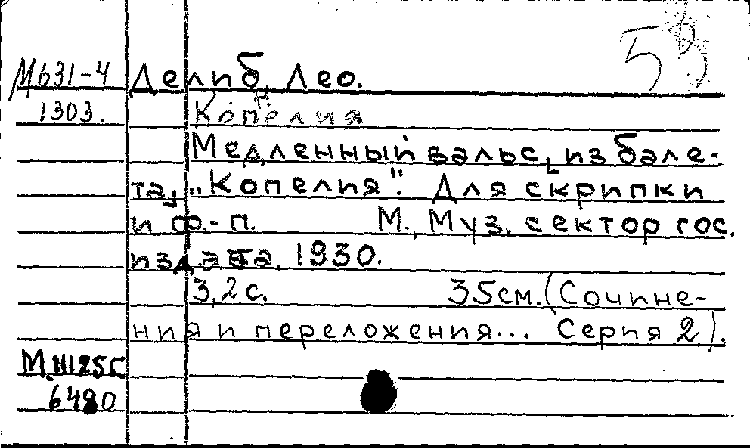 53
М631-4 Делиб, Лео.
1303. Копелия
Медленный вальс, из бале-
та, „Копелия". Для скрипки
и ф.-п. М., Муз. сектор гос.
издата, 1930.
3,2 с. 35см. (Сочине-
ния и переложения... Серия 2).
6480